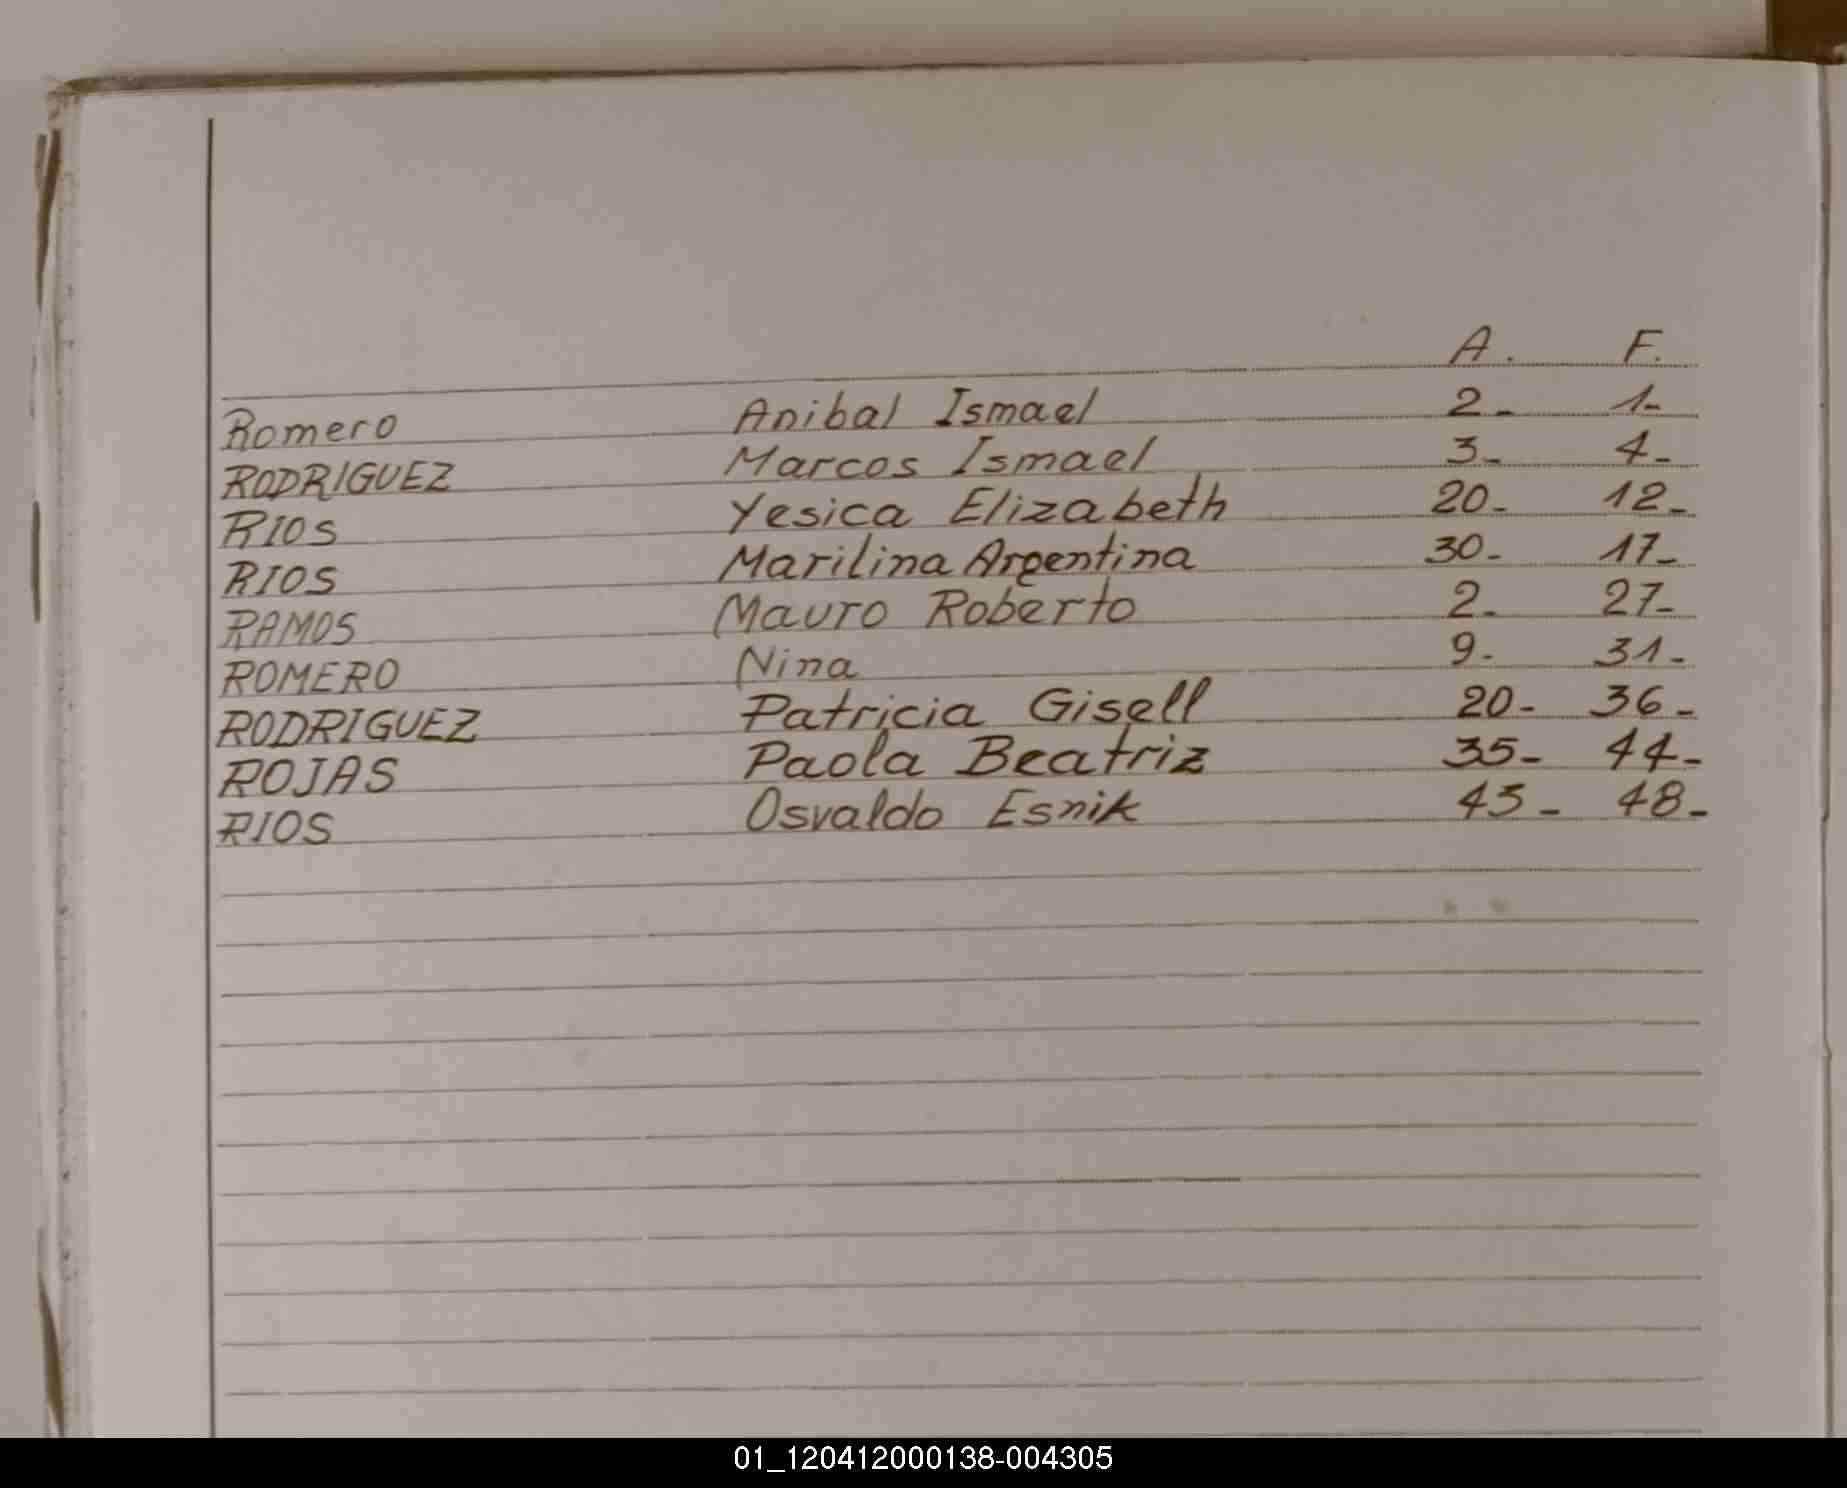 A. F.
Romero Anibal Ismael 2- 1-
RODRIGUEZ Marcos Ismael 3- 4-
RIOS Yesica Elizabeth 20- 12-
RIOS Marilina Argentina 30- 17-
RAMOS Mauro Roberto 2- 27-
ROMERO Nina 9- 31-
RODRIGUEZ Patricia Gisell 20- 36-
ROJAS Paola Beatriz 35- 44-
RIOS Osvaldo Esnik 43- 48-
01_120412000138-004305